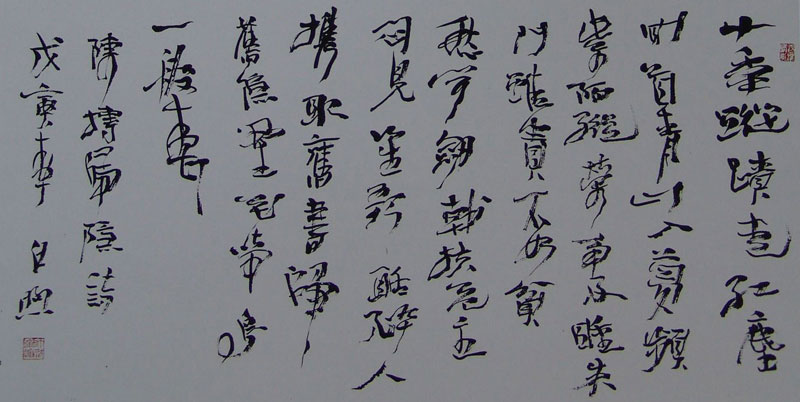 十年蹤蹟走紅塵
回首青山入夢頻
紫陌縱榮爭及睡朱
門雖貴不如貧
愁聞劍戟扶危主
悶見笙歌聒醉人
攜取舊書歸
舊隱野花啼鳥
一般春
陳摶歸隱詩
戊寅春